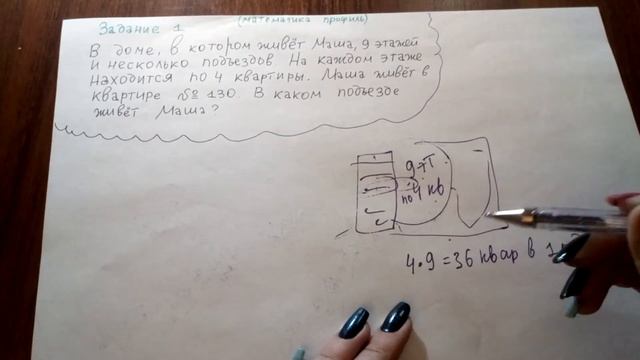 Задание 1
(математика профиль)
В доме, в котором живёт Маша, 9 этажей
и несколько подъездов. На каждом этаже
находится по 4 квартиры. Маша живёт в
квартире №130. В каком подъезде
живёт Маша?
9 эт
по 4 кв
4·9=36 квар в 1